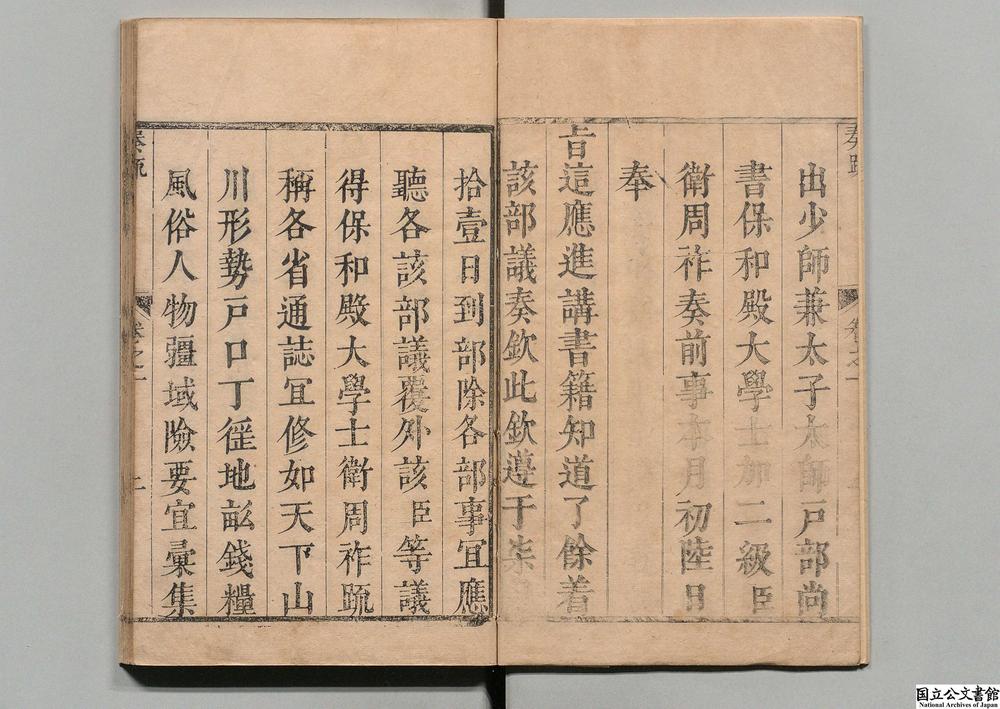 出少師兼太子太師戶部尚
書保和殿大學士加二級臣
衛周祚奏前事本月初陸日
奉
旨這應進講書籍知道了餘着
該部議奏欽此欽遵于柒
拾壹日到部除各部事宜應
聽各該部議覆外該臣等議
得保和殿大學士衛周祚疏
稱各省通誌宜修如天下山
川形勢戶口丁徭地畝錢糧
風俗人物疆域險要宜彙集
奏疏
卷之一
二
国立公文書館
National Archives of Japan